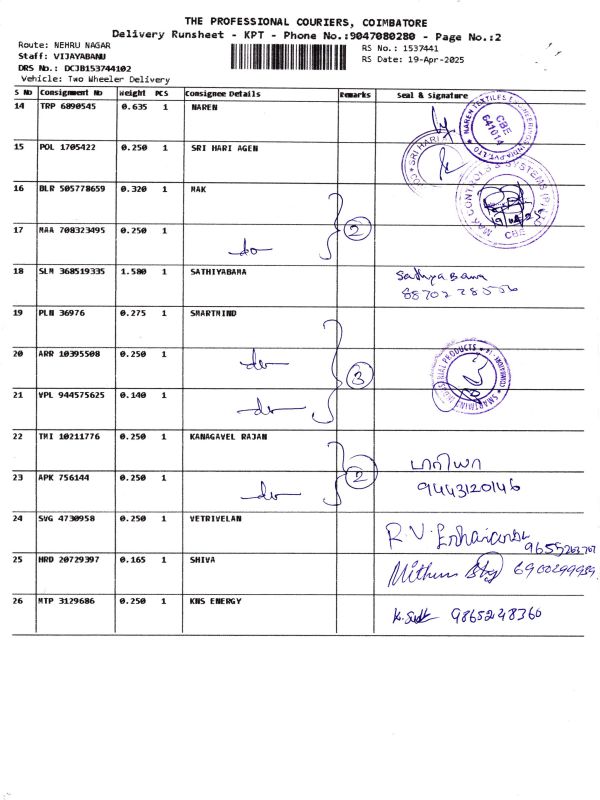 THE PROFESSIONAL COURIERS, COIMBATORE
Delivery Runsheet - KPT - Phone No.:9047080280 - Page No.:2
Route: NEHRU NAGAR
RS No.: 1537441
Staff: VIJAYABANU
RS Date: 19-Apr-2025
DRS No.: DCJB153744102
Vehicle: Two Wheeler Delivery
S No Consignment No Weight PCS Consignee Details Remarks Seal & Signature
14 TRP 6890545 0.635 1 NAREN
NAREN TEXTILES ENGINEERING(INDIA)PVT.LTD CBE 641014
15 POL 1705422 0.250 1 SRI HARI AGEN
SRI HARI
16 BLR 505778659 0.320 1 MAK
MAK CONTROLS & SYSTEMS (P) CBE
2
17 MAA 708323495 0.250 1
do
18 SLM 368519335 1.580 1 SATHIYABAMA
Sathya Bama
19 PLN 36976 0.275 1 SMARTMIND
20 ARR 10395508 0.250 1
do
3
INDUSTRIAL PRODUCTS
21 VPL 944575625 0.140 1
do
22 TMI 10211776 0.250 1 KANAGAVEL RAJAN
2
23 APK 756144 0.250 1
do
9443120146
24 SVG 4730958 0.250 1 VETRIVELAN
R.V.
25 HRD 20729397 0.165 1 SHIVA
Mithun
26 MTP 3129686 0.250 1 KNS ENERGY
9865248360